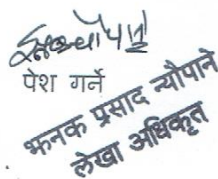 पेश गर्ने
झनक प्रसाद न्यौपाने
लेखा अधिकृत